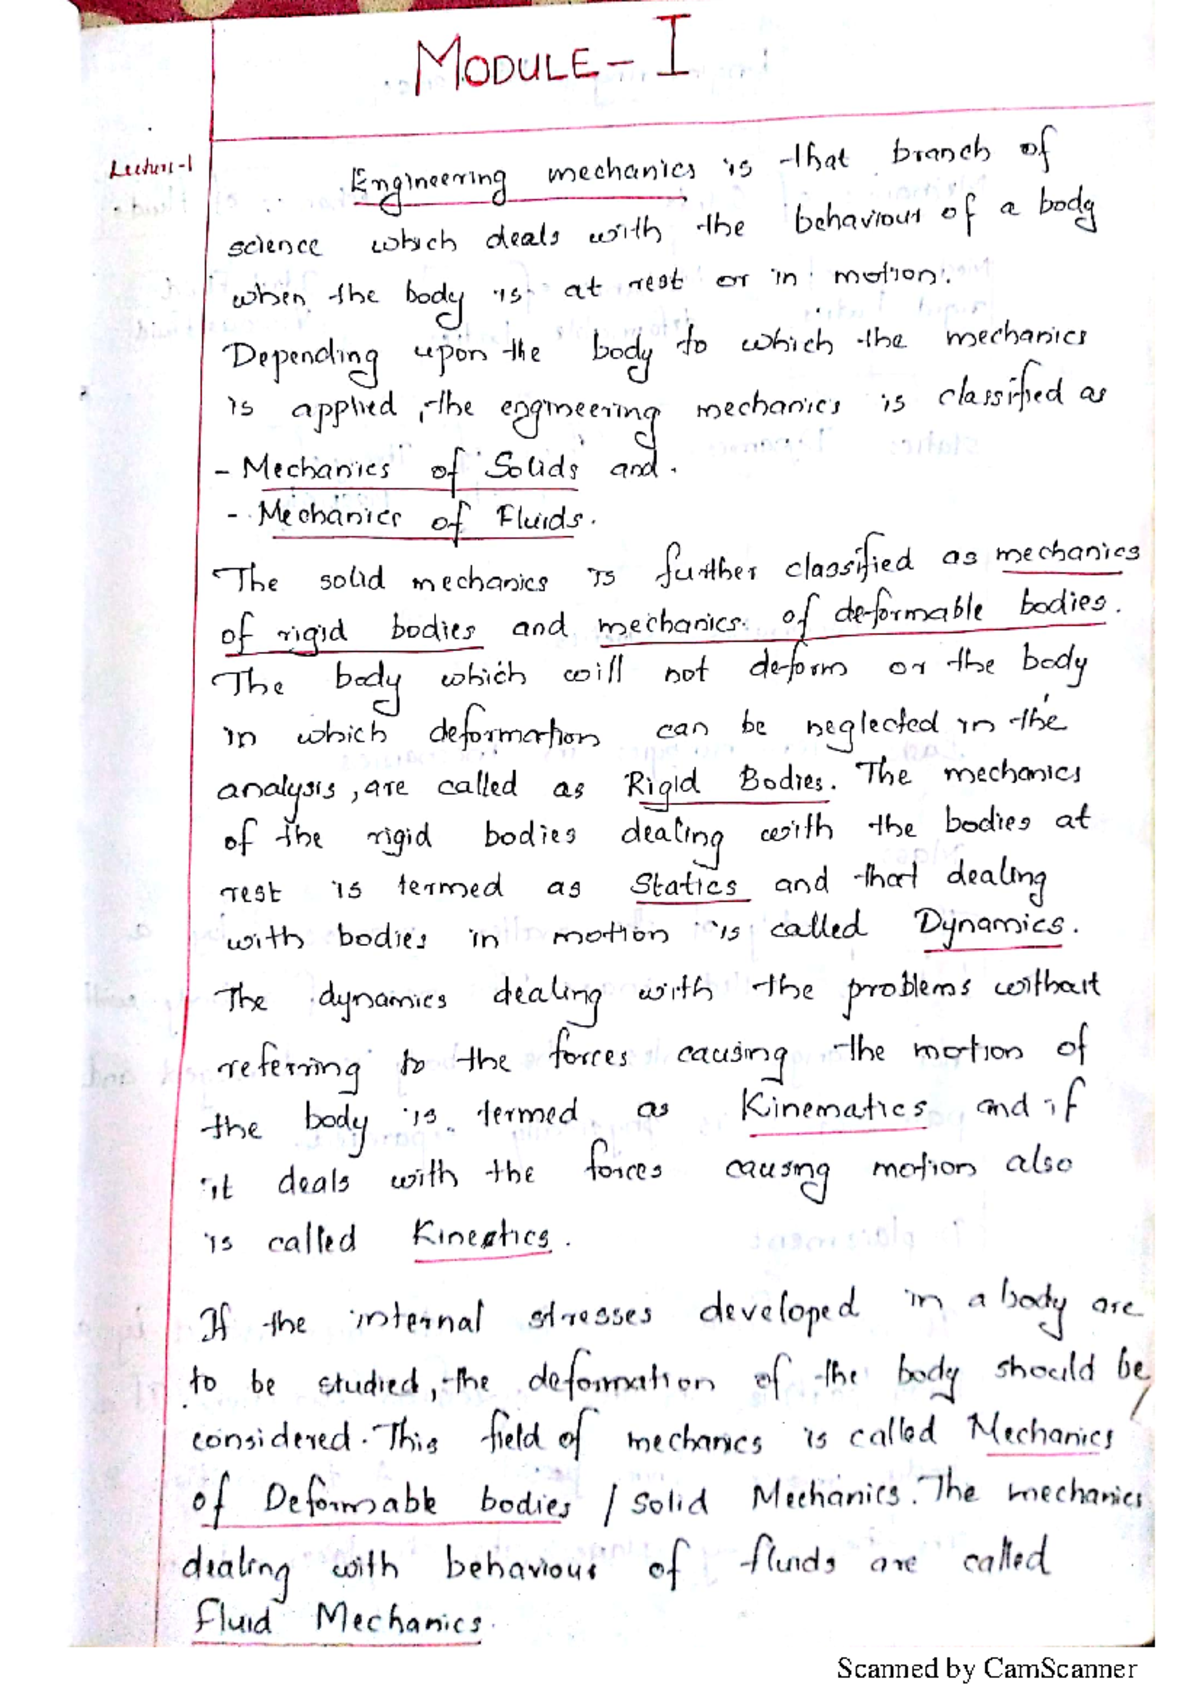 MODULE - I
Lecture-1
Engineering mechanics is that branch of
science which deals with the behaviour of a body
when the body is at rest or in motion.
Depending upon the body to which the mechanics
is applied, the engineering mechanics is classified as
- Mechanics of Solids and.
- Mechanics of Fluids.
The solid mechanics is further classified as mechanics
of rigid bodies and mechanics of deformable bodies.
The body which will not deform or the body
in which deformation can be neglected in the
analysis, are called as Rigid Bodies. The mechanics
of the rigid bodies dealing with the bodies at
rest is termed as Statics and that dealing
with bodies in motion is called Dynamics.
The dynamics dealing with the problems without
referring to the forces causing the motion of
the body is termed as Kinematics and if
it deals with the forces causing motion also
is called Kinetics.
If the internal stresses developed in a body are
to be studied, the deformation of the body should be
considered. This field of mechanics is called Mechanics
of Deformable bodies / Solid Mechanics. The mechanics
dealing with behaviour of fluids are called
Fluid Mechanics.
Scanned by CamScanner